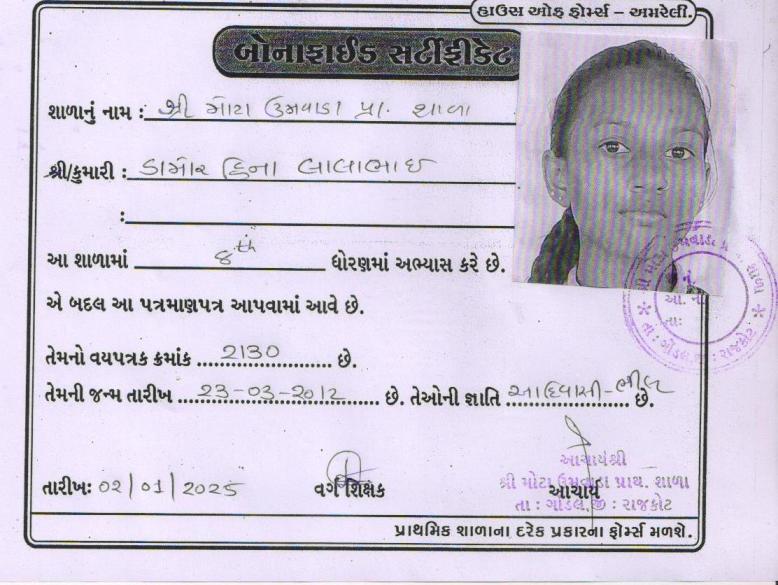 હાઉસ ઓફ ફોર્મ્સ – અમરેલી.
બોનાફાઈડ સર્ટીફીકેટ
શાળાનું નામ : શ્રી મોટા ઉમવાડા પ્રા. શાળા
શ્રી/કુમારી : ડામોર હિના લાલાભાઈ
:
આ શાળામાં 8th ધોરણમાં અભ્યાસ કરે છે.
એ બદલ આ પત્રમાણપત્ર આપવામાં આવે છે.
તેમનો વયપત્રક ક્રમાંક 2130 છે.
તેમની જન્મ તારીખ 23-03-2012 છે. તેઓની જ્ઞાતિ આદિવાસી-ભીલ છે.
આચાર્યશ્રી
શ્રી મોટા ઉમવાડા પ્રાથ. શાળા
તા : ગોંડલ.જી : રાજકોટ
તારીખઃ 02/01/2025 વર્ગ શિક્ષક આચાર્ય
પ્રાથમિક શાળાના દરેક પ્રકારના ફોર્મ્સ મળશે.